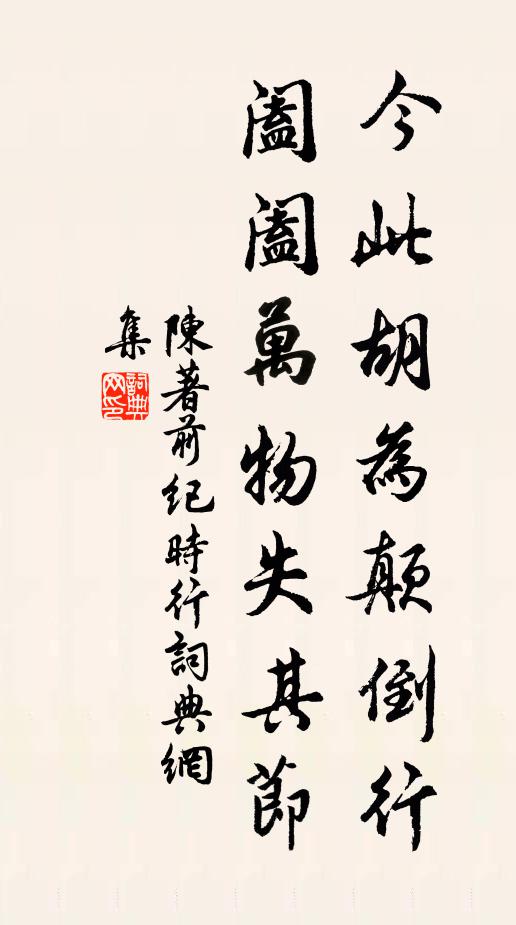 今此胡為顛倒行
闔闔萬物失其節
陳著前紀時行詞典網
集
詞典
网印